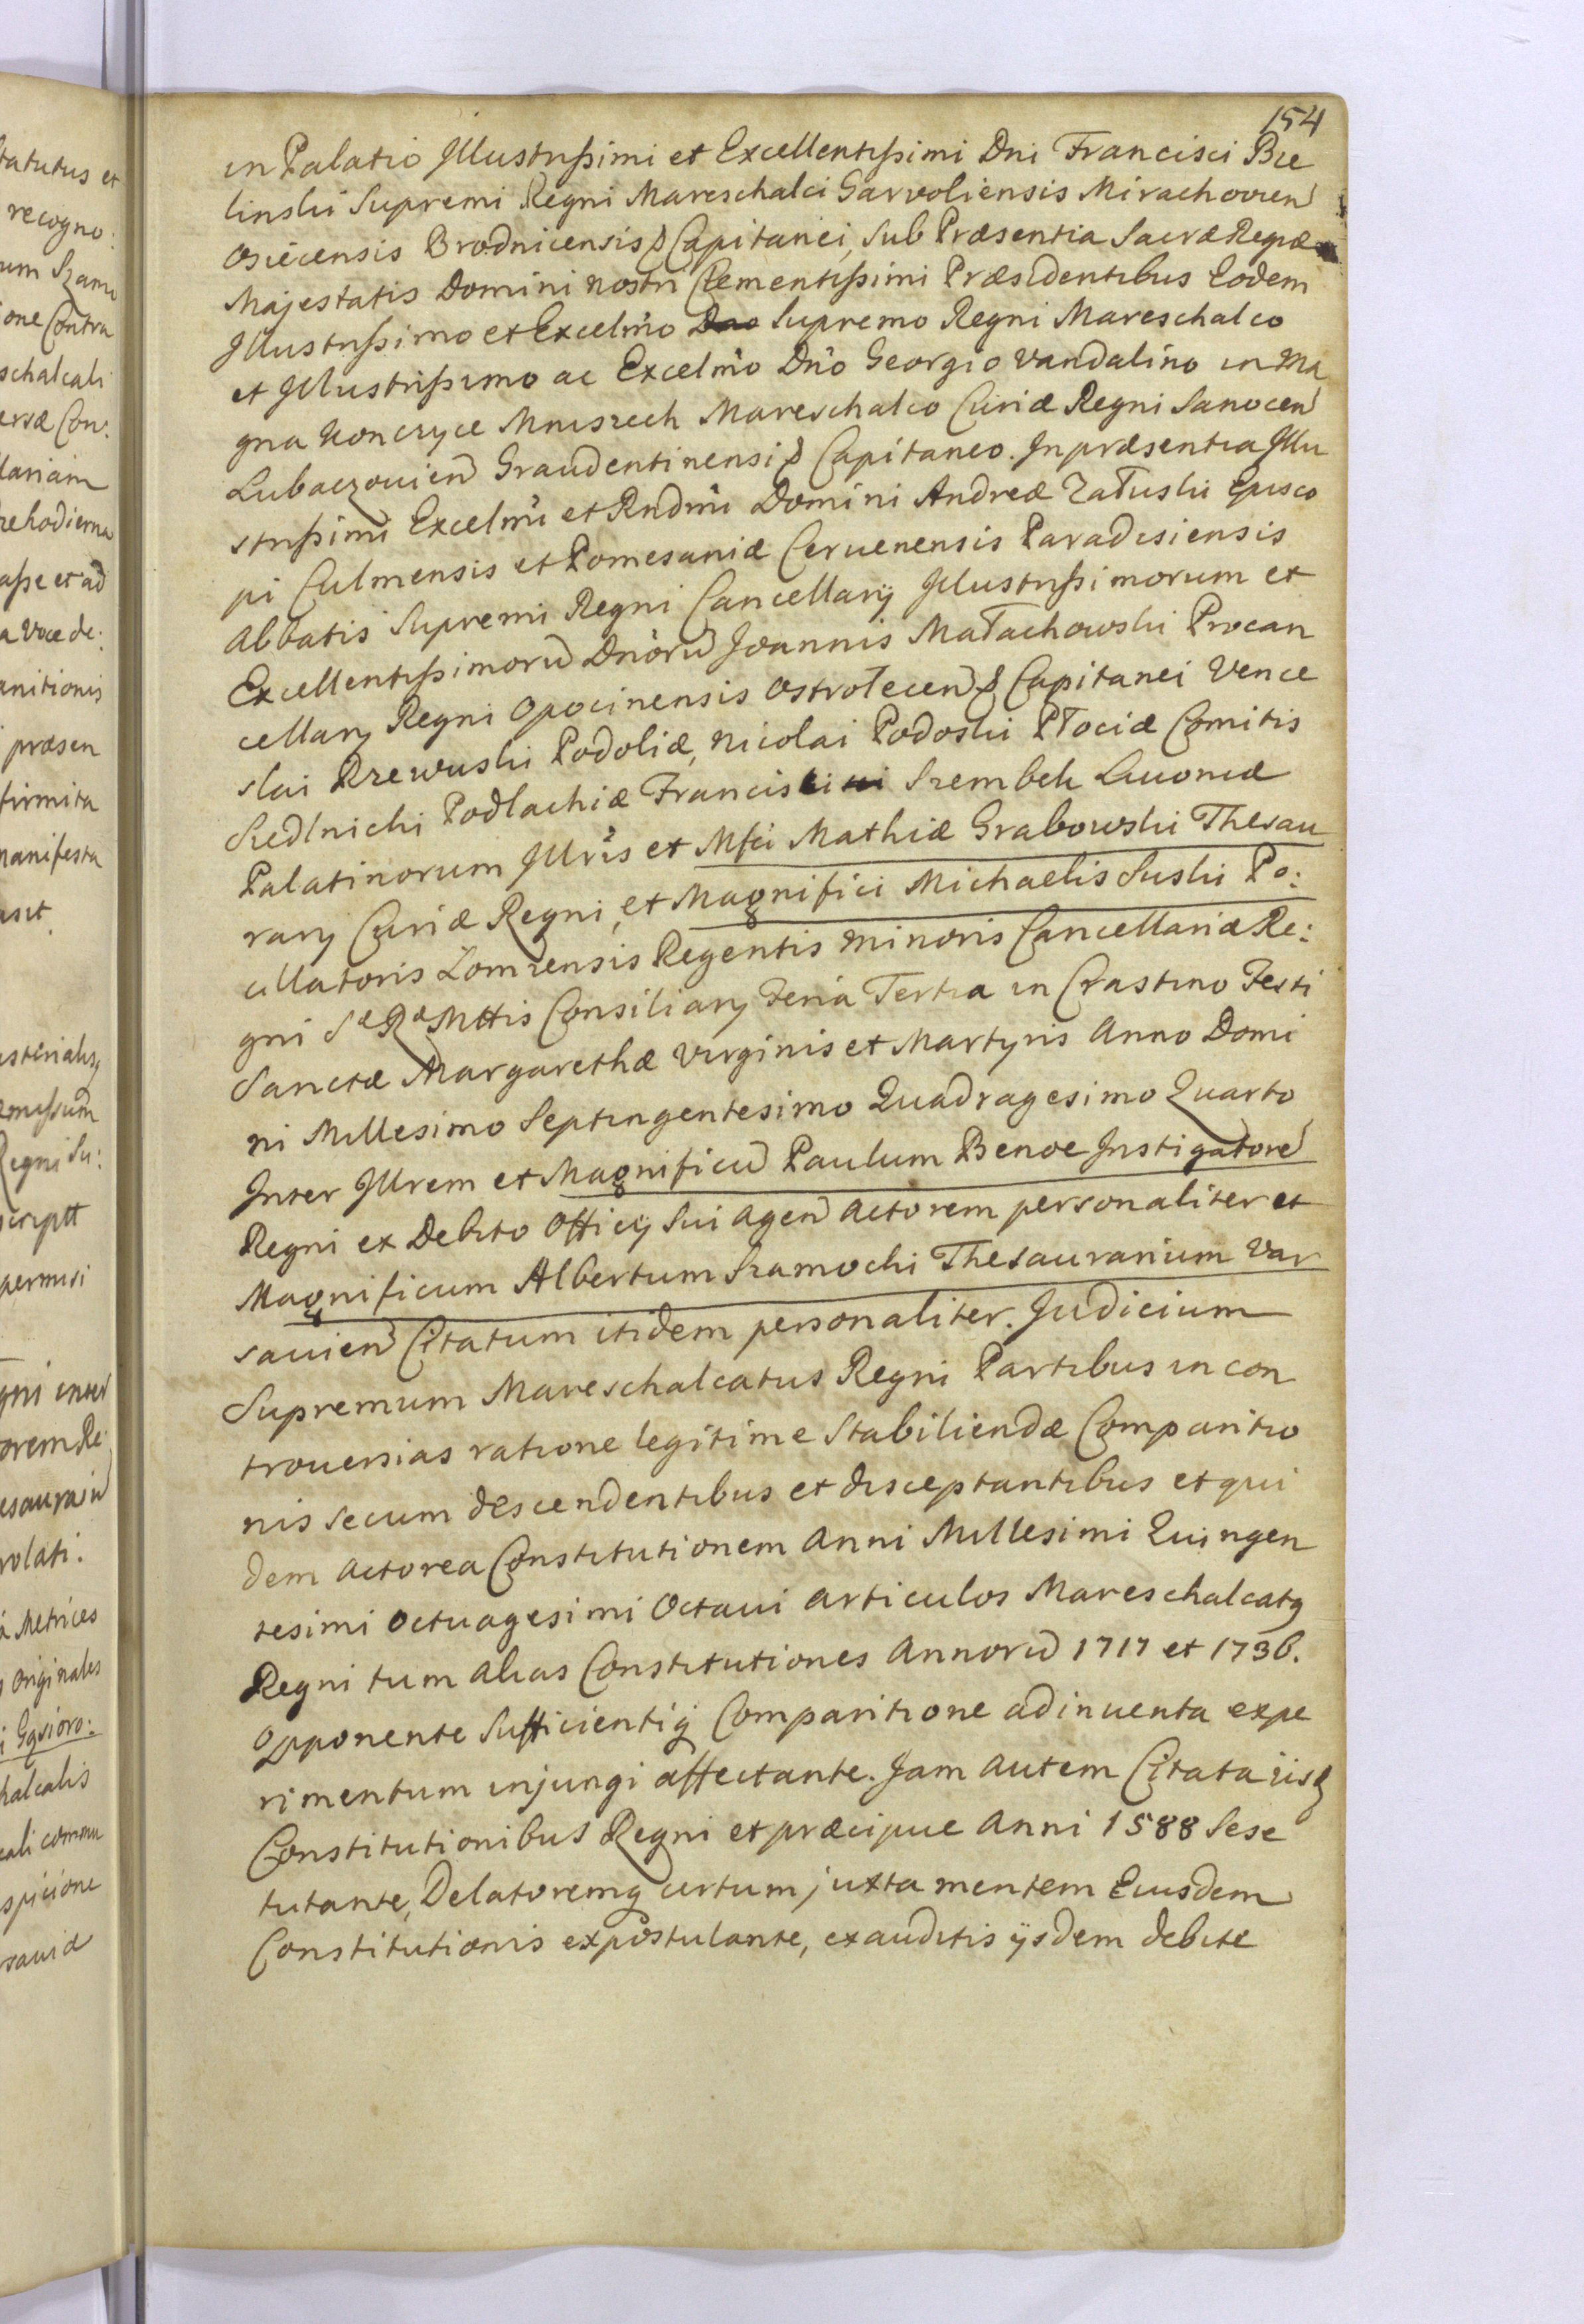 154
in Palatio Illustrissimi et Excellentissimi Dni Francisci Bie
linski Supremi Regni Mareschalci Garvoliensis Mirachovien
Osiecensis Brodnicensis & Capitanei, Sub Præsentia Sacræ Regiæ
Majestatis Domini nostri Clementissimi Præsidentibus Eodem
Illustrissimo et Excelmo Supremo Regni Mareschalco
et Illustrissimo ac Excelmo Dno Georgio Vandalino in Ma
gna Konczyce Mniszech Mareschalco Curiæ Regni Sanocen
Lubaczovien Graudentinensi & Capitaneo. In præsentia Illu
strissimi Excelmi et Rndmi Domini Andreæ Załuski Episco
pi Culmensis et Pomesaniæ Cervenensis Paradisiensis
Abbatis Supremi Regni Cancellarÿ Illustrissimorum et
Excellentissimoru Dnoru Joannis Małachowski Procan
cellarÿ Regni Opocinensis Ostrołecen & Capitanei Vence
slai Rzewuski Podoliæ, Nicolai Podoski Płociæ Comitis
Siedlnicki Podlachiæ Francisci Szembek Livoniæ
Palatinorum Illris et Mfci Mathiæ Grabowski Thesau
rarÿ Curiæ Regni, et Magnifici Michaelis Suski Po:
cillatoris Lomzensis Regentis minoris Cancellariæ Re:
gni Sæ Ræ Mttis Consiliarÿ Feria Tertia in Crastino Festi
Sanctæ Margarethæ Virginis et Martyris Anno Domi
ni Millesimo Septingentesimo Quadragesimo Quarto
Inter Illrem et Magnificu Paulum Benoe Instigatore
Regni ex Debito Officÿ Sui Agen Actorem personaliter et
Magnificum Albertum Szamocki Thesaurarium Var
savien Citatum itidem personaliter. Judicium
Supremum Mareschalcatus Regni Partibus in con
troversias ratione legitime Stabiliendæ Comparitio
nis secum descendentibus et disceptantibus et qui
dem Actorea Constitutionem Anni Millesimi Quingen
tesimi Octuagesimi Octavi Articulos Mareschalcatq
Regni tum alias Constitutiones Annoru 1717 et 1736.
Opponente Sufficientiq Comparitione adinventa expe
rimentum injungi affectante. Jam autem Citata iisq
Constitutionibus Regni et præcipue Anni 1588 Sese
tutante, Delatoremq certum juxta mentem Eiusdem
Constitutionis expostulante, exauditis ÿsdem debite